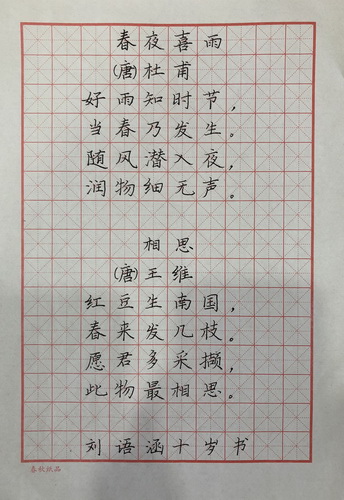 春夜喜雨
(唐)杜甫
好雨知时节，
当春乃发生。
随风潜入夜，
润物细无声。
相思
(唐)王维
红豆生南国，
春来发几枝。
愿君多采撷，
此物最相思。
刘语涵十岁书